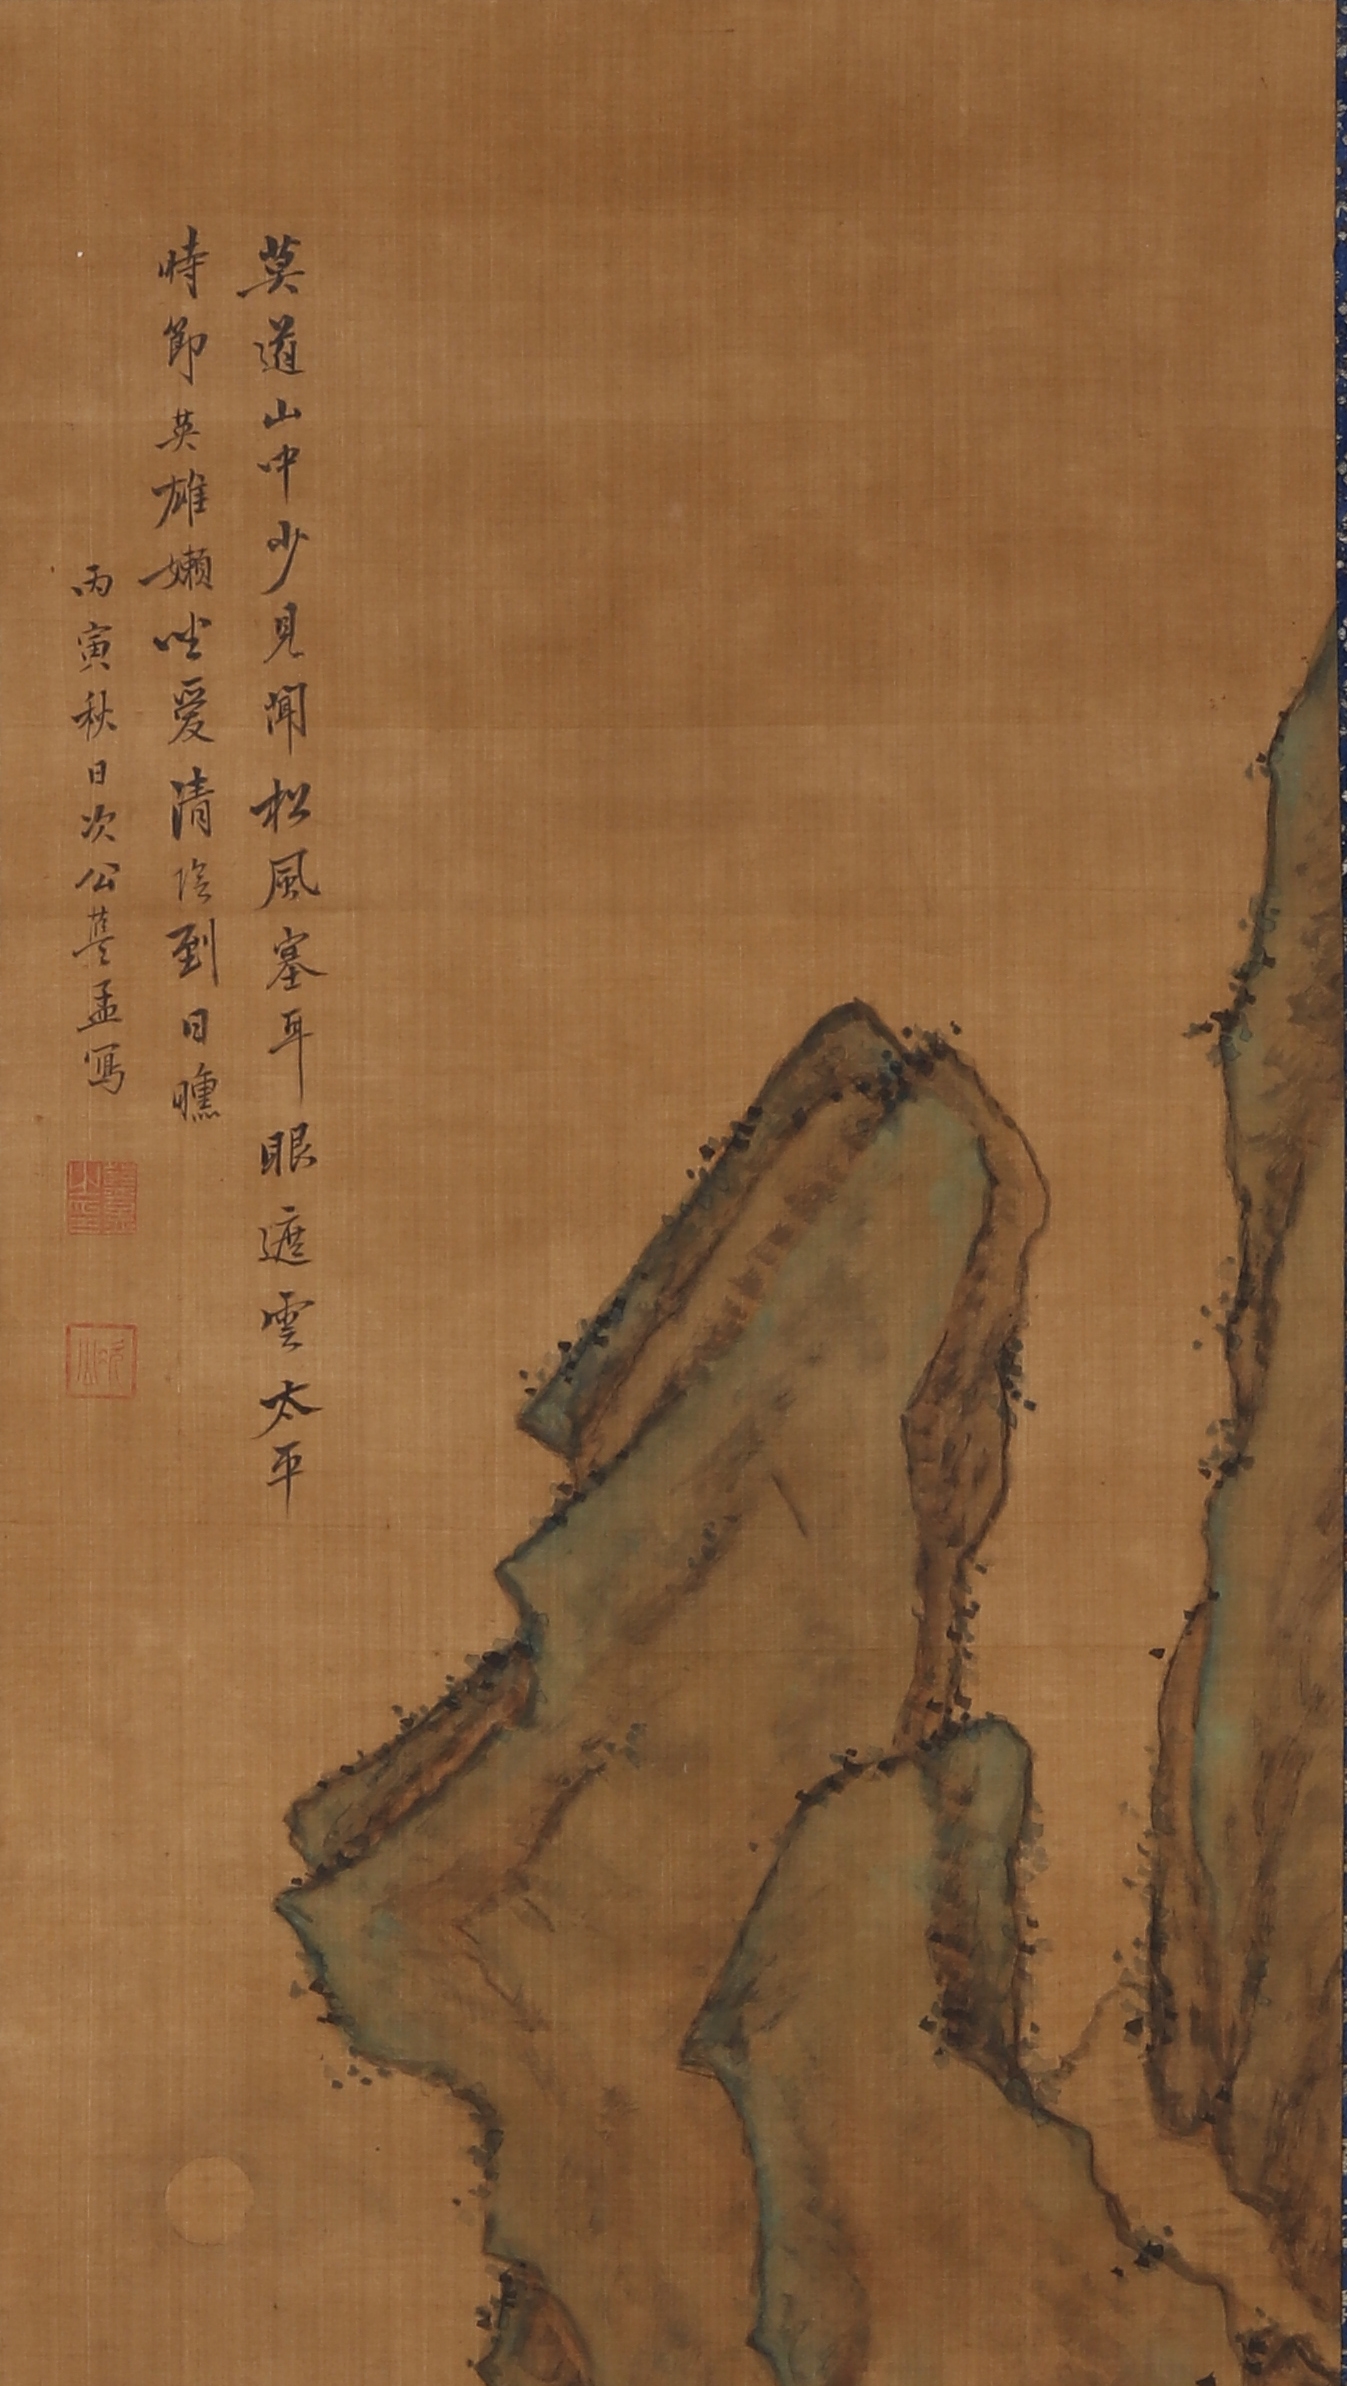 莫道山中少見聞松風塞耳眼遮雲太平
時節英雄嬾坐愛清陰到日曛
丙寅秋日次公葛孟寫